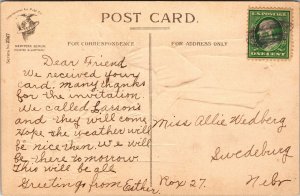 POST CARD.
FOR CORRESPONDENCE.
FOR ADDRESS ONLY
Dear Friend
We received your
card, many thanks
for the invitation.
We called Larsons
and they will come
Hope the weather will
be nice then. We will
be there to morrow.
This will be all
Greetings from Esther.
Miss Allie Hedberg
Swedeburg
Box 27. Nebr